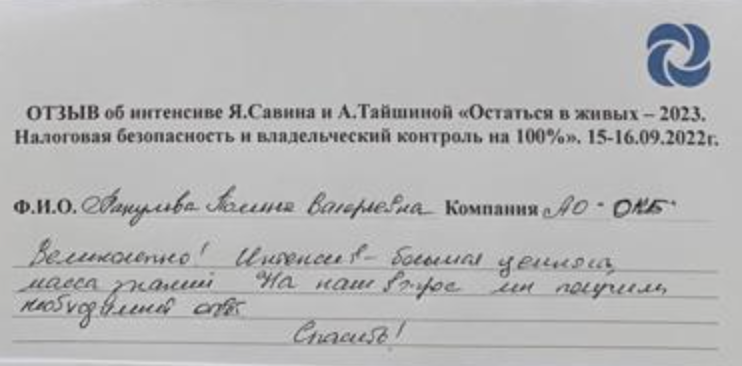 ОТЗЫВ об интенсиве Я.Савина и А.Тайшиной «Остаться в живых – 2023.
Налоговая безопасность и владельческий контроль на 100%». 15-16.09.2022г.
Ф.И.О. Валерьевна Компания АО "ОКБ"
Великолепно! Интенсив - большая ценность,
масса знаний. На наш вопрос мы получили
необходимый ответ
Спасибо!